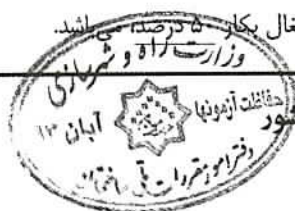 غال بکار ۵۰ درصد، می‌باشد.
وزارت راه و شهرسازی
حفاظت آزمونها
آبان ۹۳
ور
دفتر امور مقررات ملی ساختمان